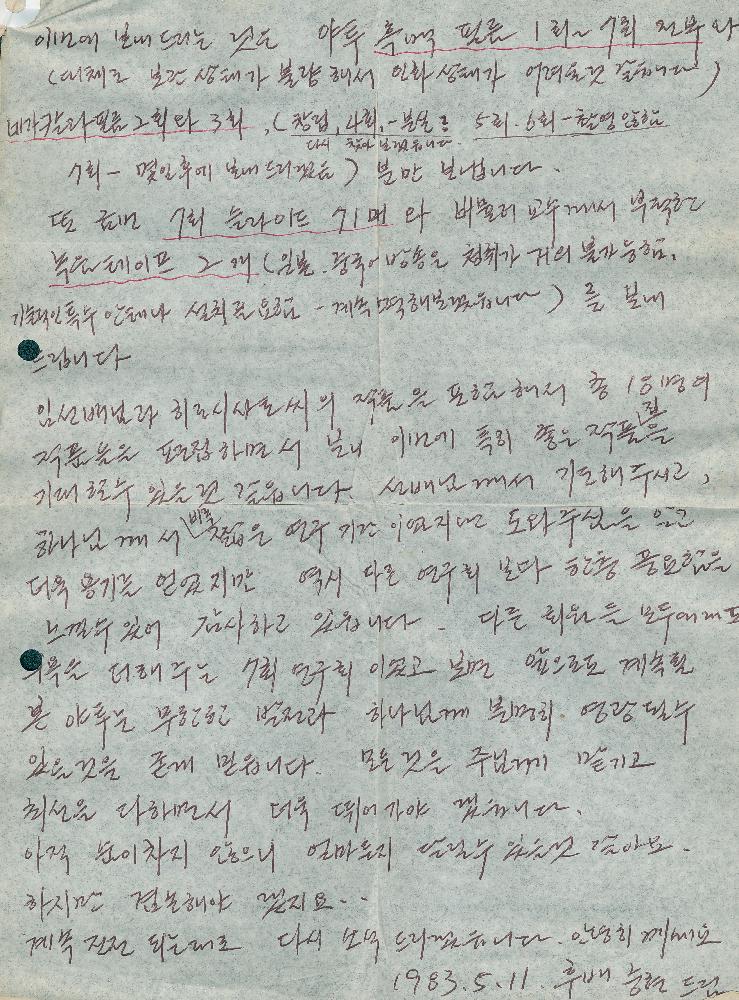 이번에 보내 드리는 것은 야투 흑백 필름 1회~7회 전부와
(여제고 보관 상태가 불량해서 인화 상태가 어려울것 같습니다)
네가칼라필름 2회와 3회, (창립, 4회, -분실 : 5회. 6회 - 촬영 안함
다시 찾아 보겠읍니다.
7회 - 몇일후에 보내 드리겠음) 분만 보냅니다.
또 금번 7회 슬라이드 71매 와 교수께서 부탁한
녹음테이프 2개 (일본. 중국어 방송은 청취가 거의 불가능함.
기술적인 특수 안테나 설치를 요함 - 계속 노력해보겠읍니다) 를 보내
드립니다
임선배님과 히로시사로씨의 작품을 포함해서 총 18명의
작품들을 편집하면서 보니 이번에 특히 좋은 작품집을
기대할수 있을것 같읍니다. 선배님께서 기도해주시고,
하나님께서 비록 짧은 연구 기간이었지만 도와주심을 알고
더욱 용기를 얻었지만 역시 다른 연구회 보다 한층 풍요함을
느낄수 있어 감사하고 있읍니다. 다른 회원들 모두에게도
의욕을 더해주는 7회 연구회 이었고 보면 앞으로도 계속될
본 야투는 무한한 발전과 하나님께 분명히 영광될수
있을것을 굳게 믿읍니다. 모든것을 주님께 맡기고
최선을 다하면서 더욱 뛰어가야 겠읍니다.
아직 숨이차지 않으니 얼마든지 달릴수 있을것 같아요.
하지만 겸손해야 겠지요..
계속 진전 되는대로 다시 소식 드리겠읍니다. 안녕히 계세요
1983.5.11. 후배 승현 드림